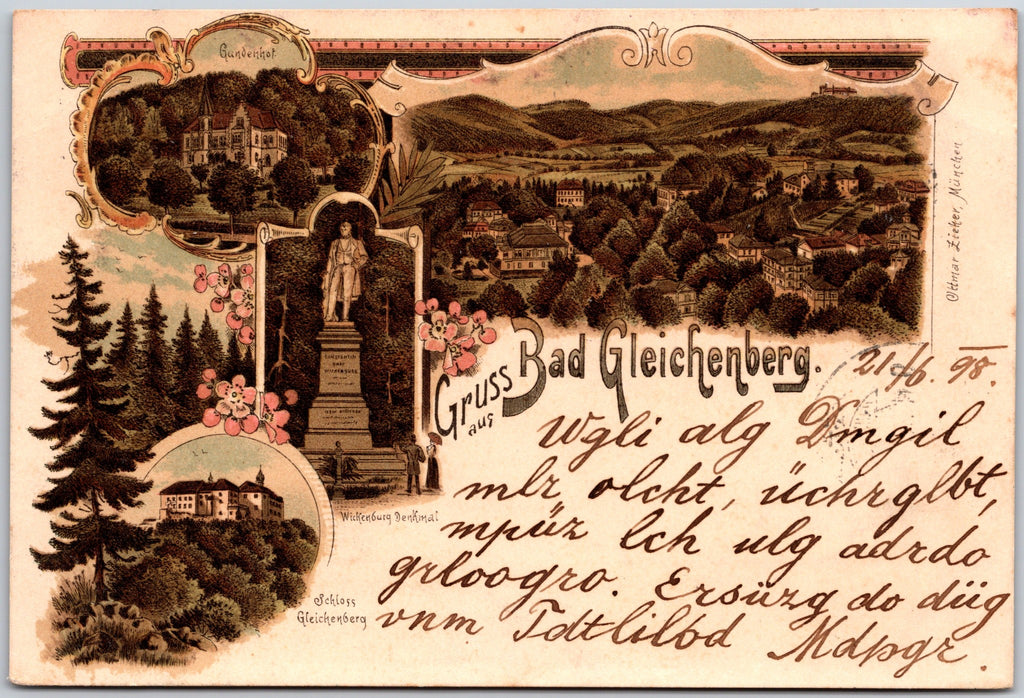 Gundenhof.
Ottmar Zieher, München
Gruss
aus
Bad Gleichenberg.
CONSTANTIN
GRAF
WICKENBURG
Wickenburg Denkmal
Schloss
Gleichenberg
21/6. 98.
Wgli alg Dmgil
mlr olcht, üchrglbt,
mpüz lch ulg adrdo
grloogro. Ersüzg do düg
vnm Tdtlilod Mdpgr.